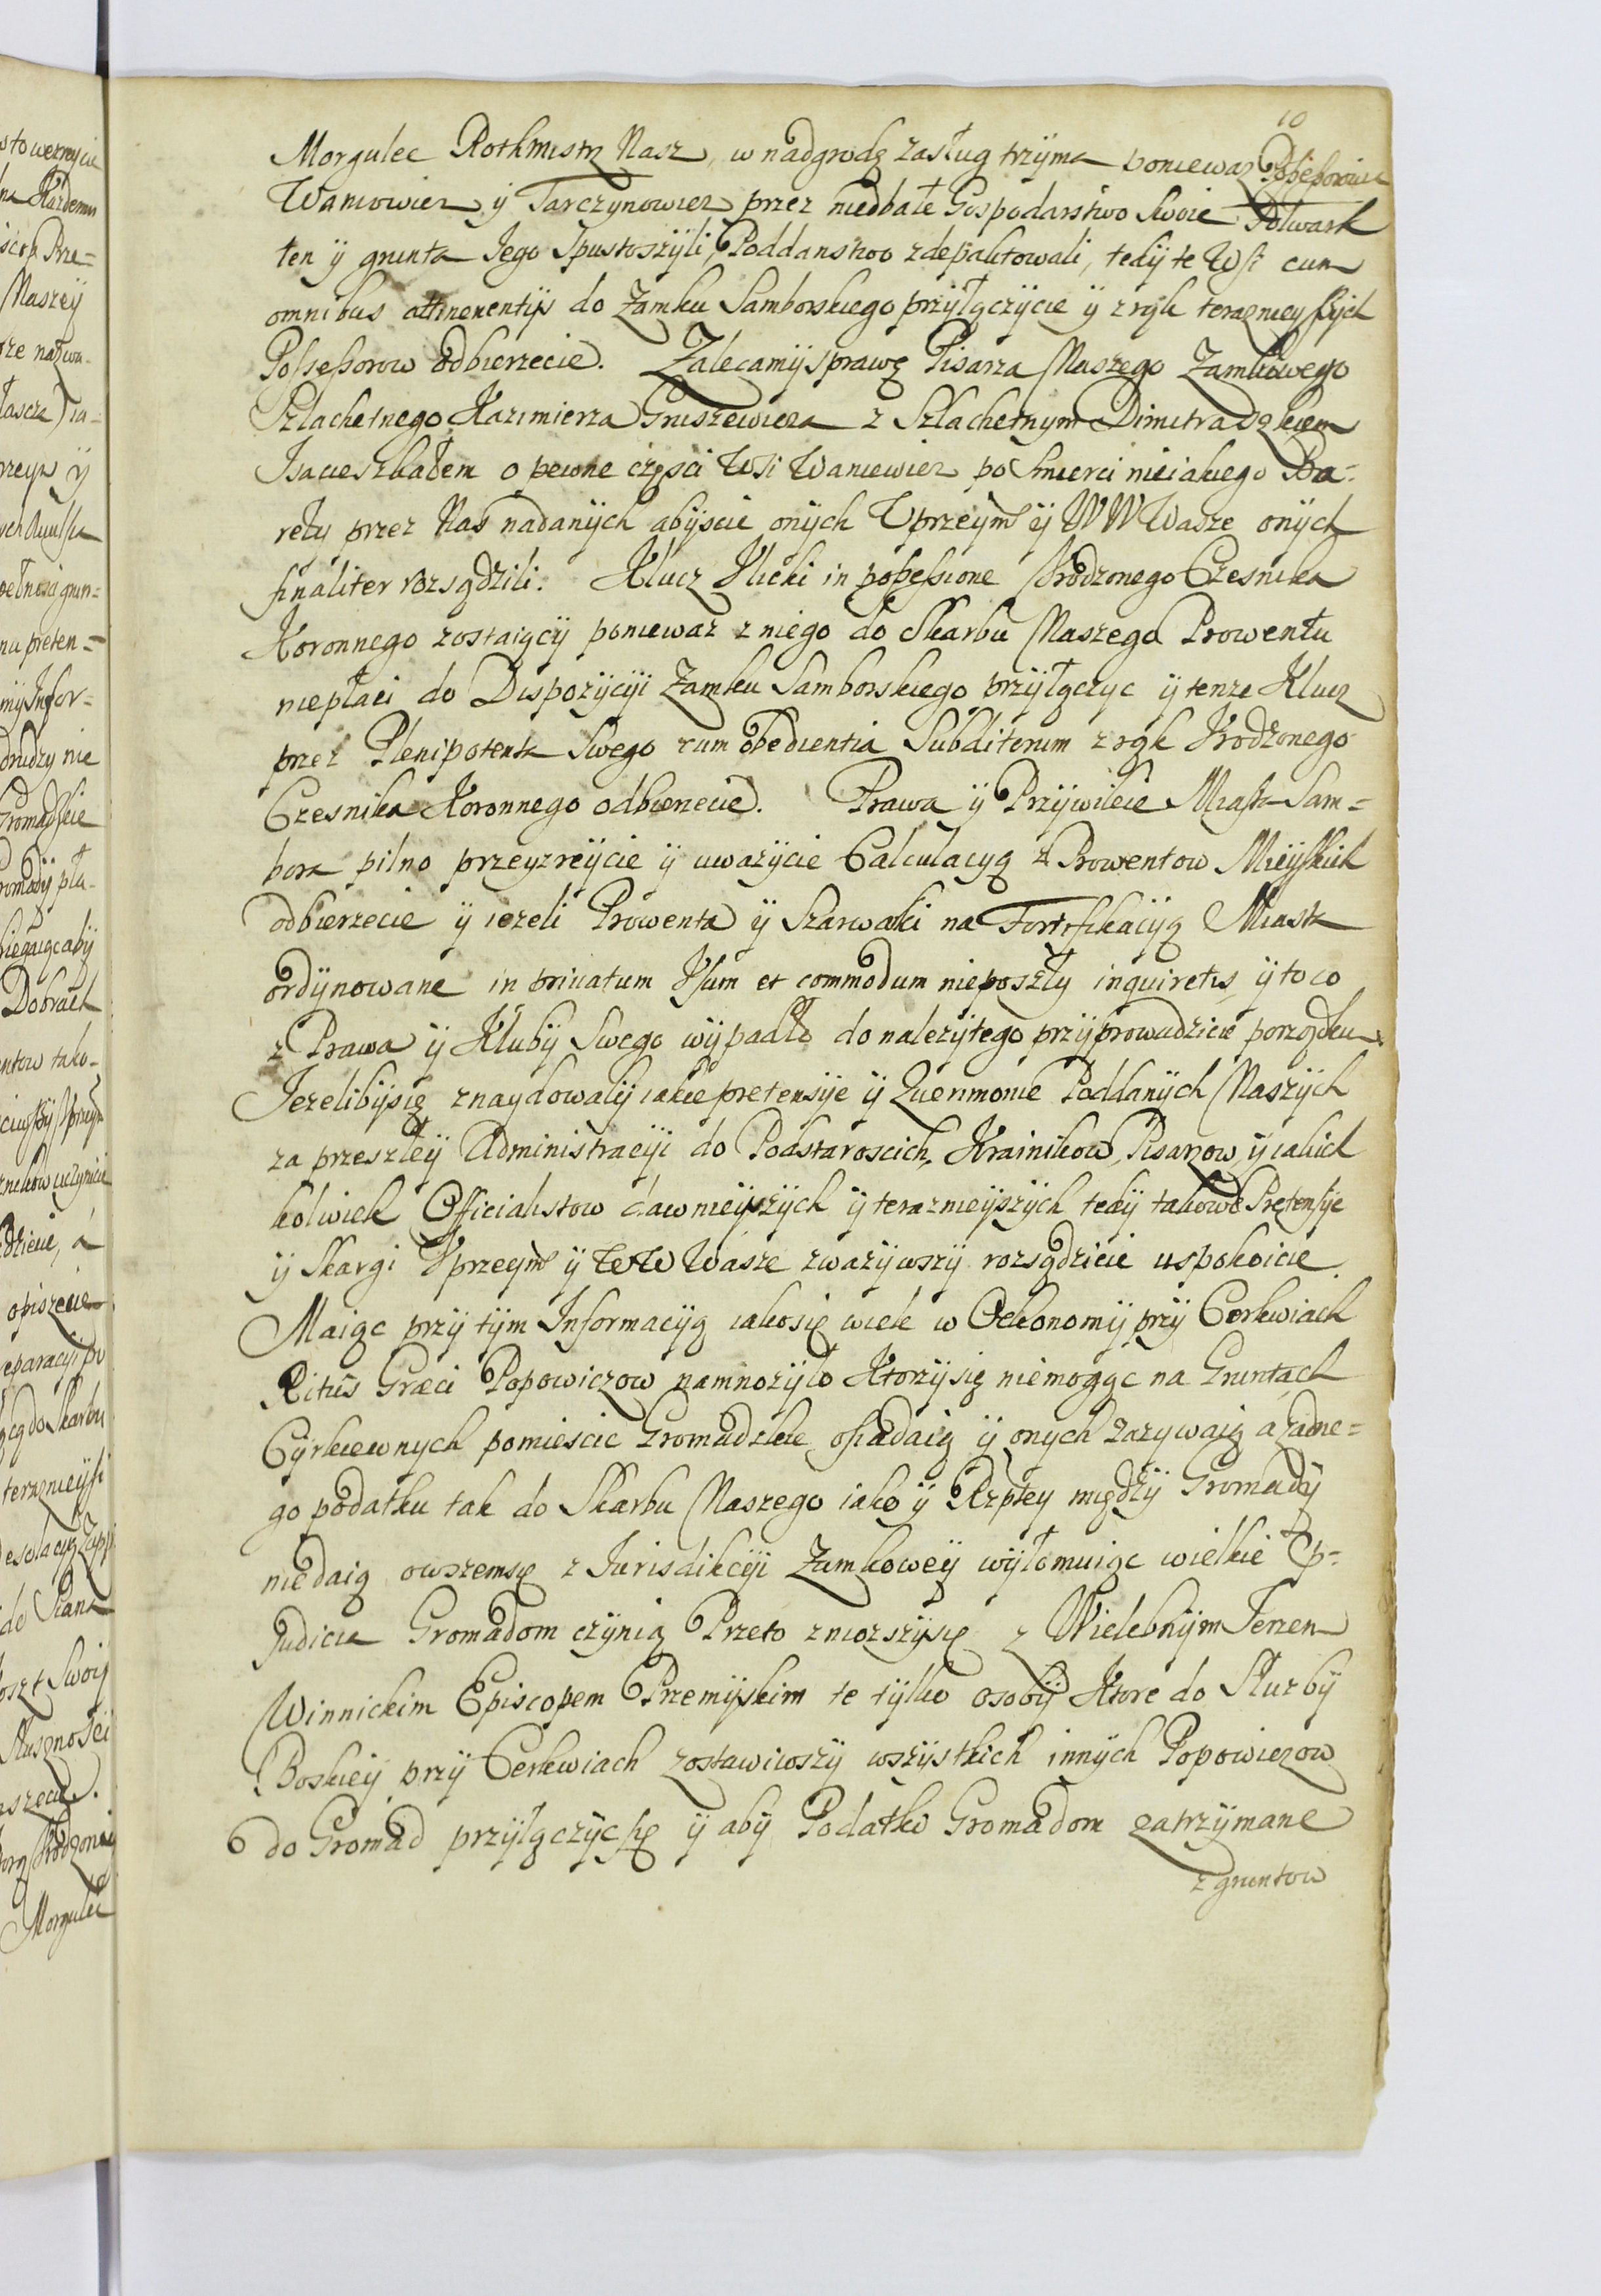 10
Morgulec Rothmistrz Nasz, w nadgrodę zasług trzÿma poniewaz Possessorowie
Waniowicz ÿ Tarczynowicz przez niedbałe Gospodarstwo Swoie Folwark
ten ÿ grunta Jego Spustoszÿli, Poddanstwo zdepaktowali, tedÿ te Wsi cum
omnibus attinenentijs do Zamku Samborskiego przÿłączÿcie ÿ z rąk teraznieyszÿch
Possessorow odbierzecie. Zalecamÿ sprawę Pisarza Naszego Zamkowego
Szlachetnego Kazimierza Gruszewicza z Szlachetnym Dimitraszkiem
Isaieszkałem o pewne częsci Wsi Waniewicz po Smierci nieiakiego Ba=
rety przez Nas nadanÿch abÿscie onÿch Uprzeÿm ÿ WW Wasze onÿch
finaliter rozsądzili. Klucz Ilicki in possessione Urodzonego Czesnika
Koronnego zostaiącÿ poniewaz z niego do Skarbu Naszego Prowentu
niepłaci do Dispozÿcÿi Zamku Samborskiego przÿłączyc ÿ tenze Klucz
przez Plenipotenta Swego cum obedientia Subditorum z rąk Urodzonego
Czesnika Koronnego odbierzecie. Prawa ÿ Przÿwileie Miasta Sam=
bora pilno przeyzreÿcie ÿ uwazÿcie Calculacyą z Prowentow Mieÿskich
odbierzecie ÿ iezeli Prowenta ÿ Szarwarki na Fortifikacÿą Miasta
ordÿnowane in privatum Usum et commodum nieposzły inquiretis, ÿ to co
z Prawa ÿ Klubÿ Swego wÿpadło do nalezÿtego przÿprowadzicie porządku.
Jezelibÿsię znaydowalÿ iakie pretensÿe ÿ Querimonie Poddanÿch Naszÿch
za przeszłeÿ Administracÿi do Podstaroscich, Krainikow, Pisarzow, ÿ iakich
kolwiek Officialistow dawnieÿszÿch ÿ teraznieÿszÿch tedÿ takowe Pretensÿe
ÿ Skargi Uprzeÿm ÿ WW Wasze zwazÿwszÿ rozsądzicie uspokoicie.
Maiąc przÿ tÿm Informacÿą iakosię wiele w Oekonomÿ przÿ Cerkwiach
Ritus Græci Popowiczow namnozÿło Ktorzÿ się niemogąc na Gruntach
Cÿrkiewnych pomiescic Gromadzkie osiadaią ÿ onych Zazywaią a zadne=
go podatku tak do Skarbu Naszego iako ÿ Rzptey między Gromadÿ
niedaią owszemsię z Jurisdikcÿi Zamkoweÿ wÿłomuiąc wielkie Præ=
judicia Gromadom czÿnią Przeto zniozszÿsię z Wielebnÿm Jerzem
Winnickim Episcopem Przemÿskim te tÿlko osobÿ Ktore do Słuzbÿ
Boskieÿ przÿ Cerkwiach zostawiwszÿ wszÿstkich innych Popowiczow
do Gromad przÿłączÿc się ÿ abÿ Podatki Gromadom zatrzÿmane
z gruntow